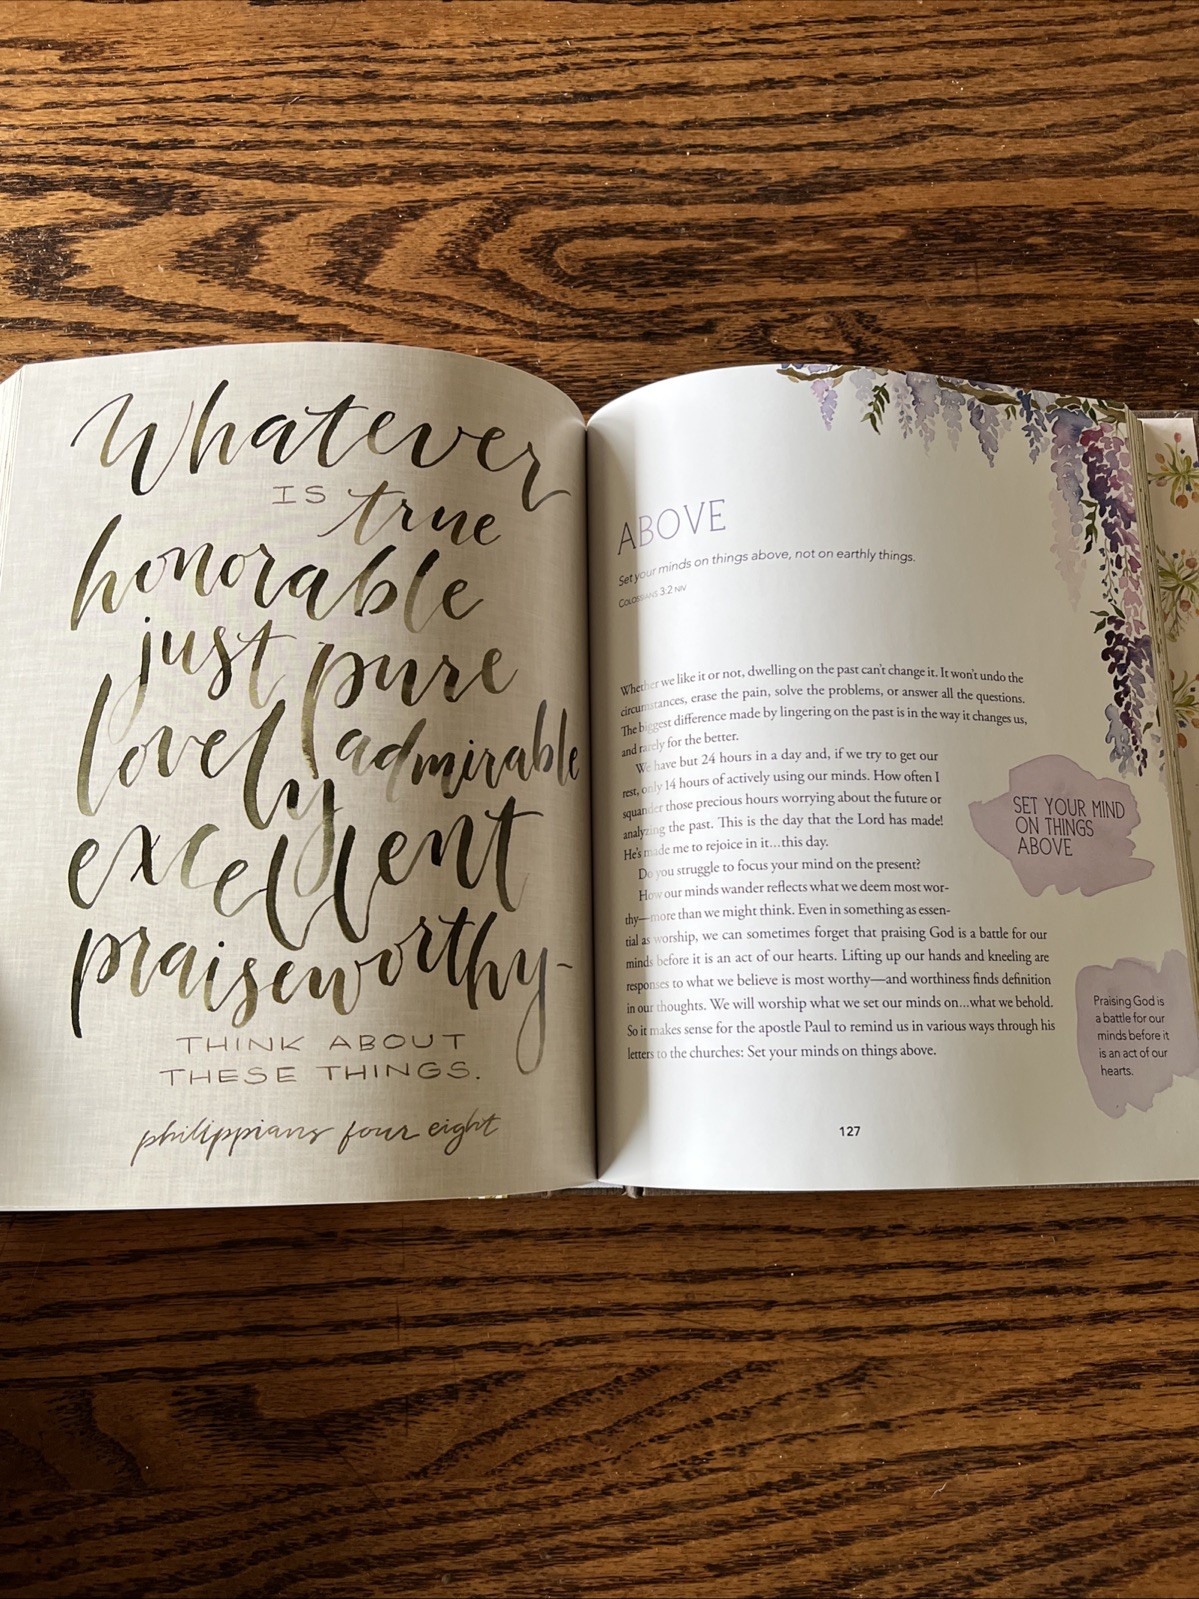 Whatever
IS true
honorable
just pure
lovely admirable
excellent
praiseworthy-
THINK ABOUT
THESE THINGS.
philippians four eight
ABOVE
Set your minds on things above, not on earthly things.
COLOSSIANS 3:2 NIV
Whether we like it or not, dwelling on the past can't change it. It won't undo the
circumstances, erase the pain, solve the problems, or answer all the questions.
The biggest difference made by lingering on the past is in the way it changes us,
and rarely for the better.
We have but 24 hours in a day and, if we try to get our
rest, only 14 hours of actively using our minds. How often I
squander those precious hours worrying about the future or
analyzing the past. This is the day that the Lord has made!
He's made me to rejoice in it...this day.
Do you struggle to focus your mind on the present?
How our minds wander reflects what we deem most wor-
thy—more than we might think. Even in something as essen-
tial as worship, we can sometimes forget that praising God is a battle for our
minds before it is an act of our hearts. Lifting up our hands and kneeling are
responses to what we believe is most worthy—and worthiness finds definition
in our thoughts. We will worship what we set our minds on...what we behold.
So it makes sense for the apostle Paul to remind us in various ways through his
letters to the churches: Set your minds on things above.
SET YOUR MIND
ON THINGS
ABOVE
Praising God is
a battle for our
minds before it
is an act of our
hearts.
127